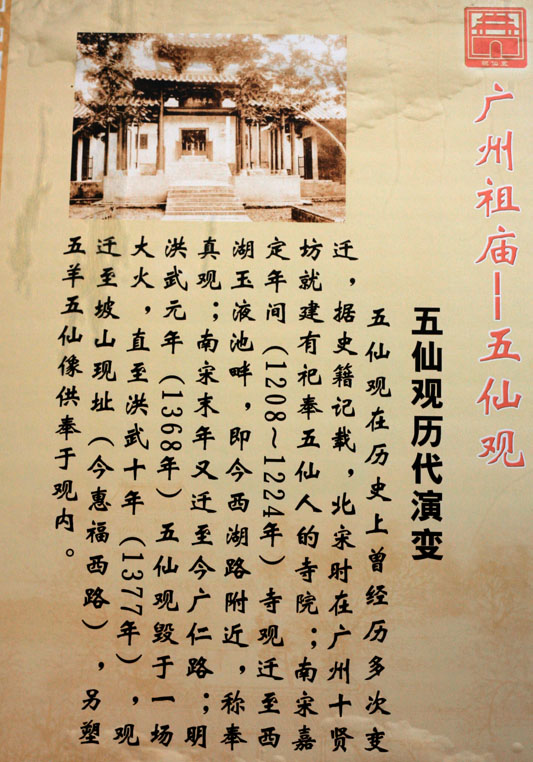 广州祖庙——五仙观
五仙观历代演变
五仙观在历史上曾经历多次变
迁，据史籍记载，北宋时在广州十贤
坊就建有祀奉五仙人的寺院；南宋嘉
定年间（1208～1224年）寺观迁至西
湖玉液池畔，即今西湖路附近，称奉
真观；南宋末年又迁至今广仁路；明
洪武元年（1368年）五仙观毁于一场
大火，直至洪武十年（1377年），观
迁至坡山现址（今惠福西路），另塑
五羊五仙像供奉于观内。